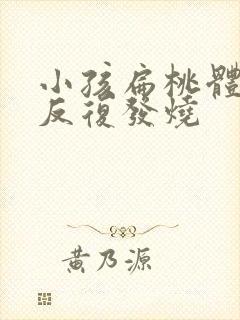 小孩扁桃體
反復發燒
黃乃源